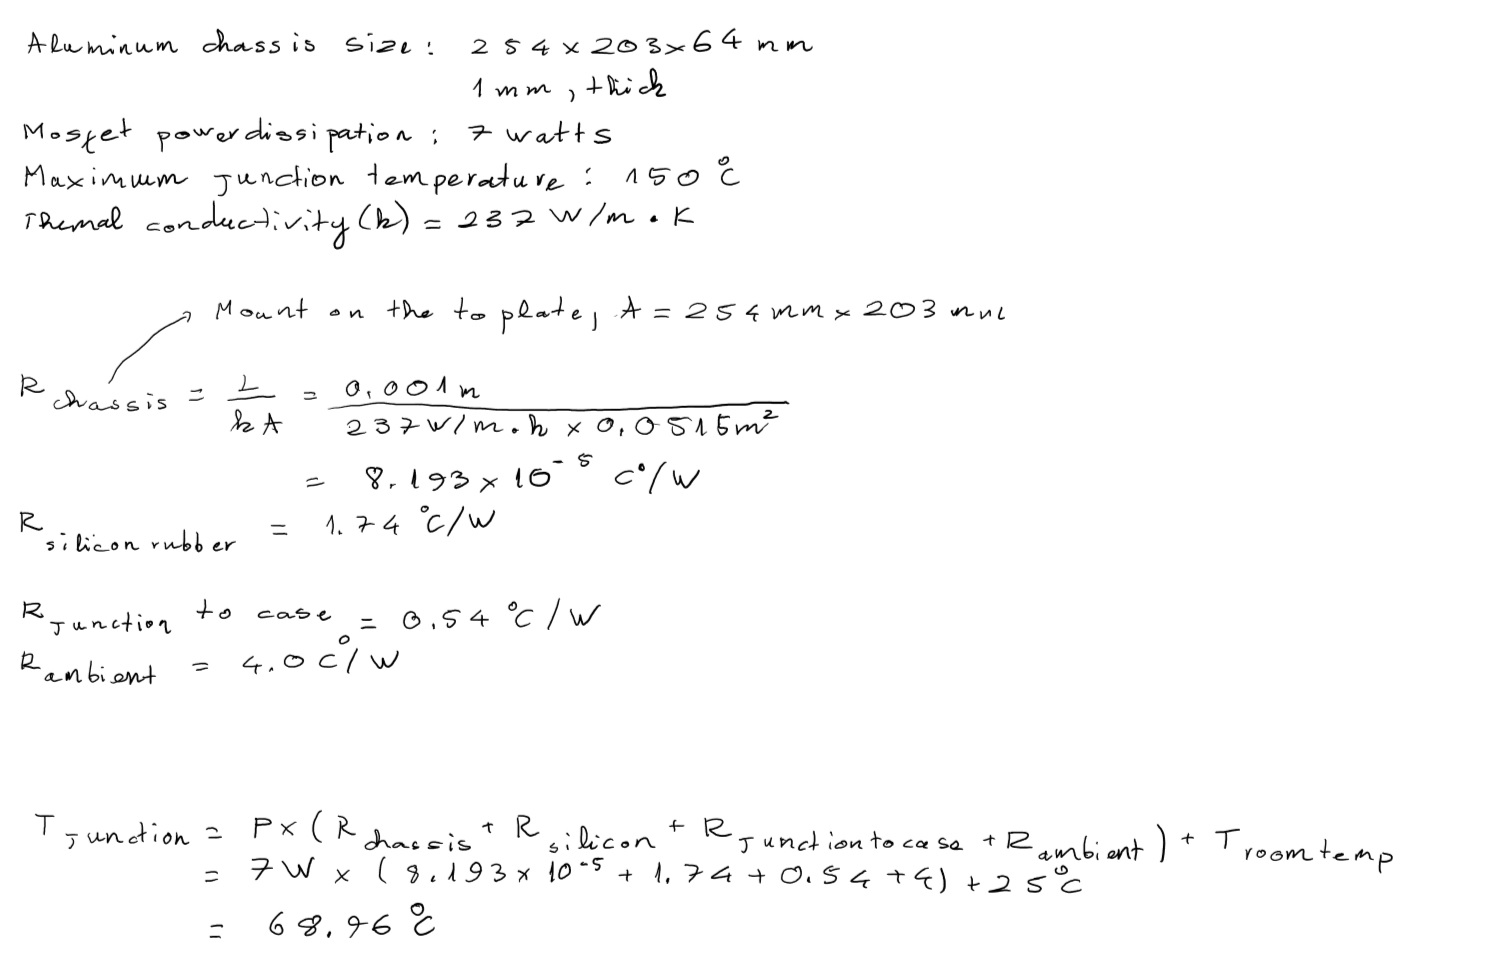 Aluminum chassis size: 254 x 203 x 64 mm
1 mm, thick
Mosfet power dissipation: 7 watts
Maximum Junction temperature: 150 °C
Thermal conductivity (k) = 237 W/m • K
Mount on the to plate, A = 254 mm x 203 mm
R chassis = L / kA = 0.001 m / 237 W/m • k x 0.0515 m²
= 8.193 x 10⁻⁵ C°/W
R silicon rubber = 1.74 °C/W
R Junction to case = 0.54 °C/W
R ambient = 4.0 C°/W
T Junction = P x (R chassis + R silicon + R Junction to case + R ambient) + T room temp
= 7W x (8.193 x 10⁻⁵ + 1.74 + 0.54 + 4) + 25 °C
= 68.96 °C